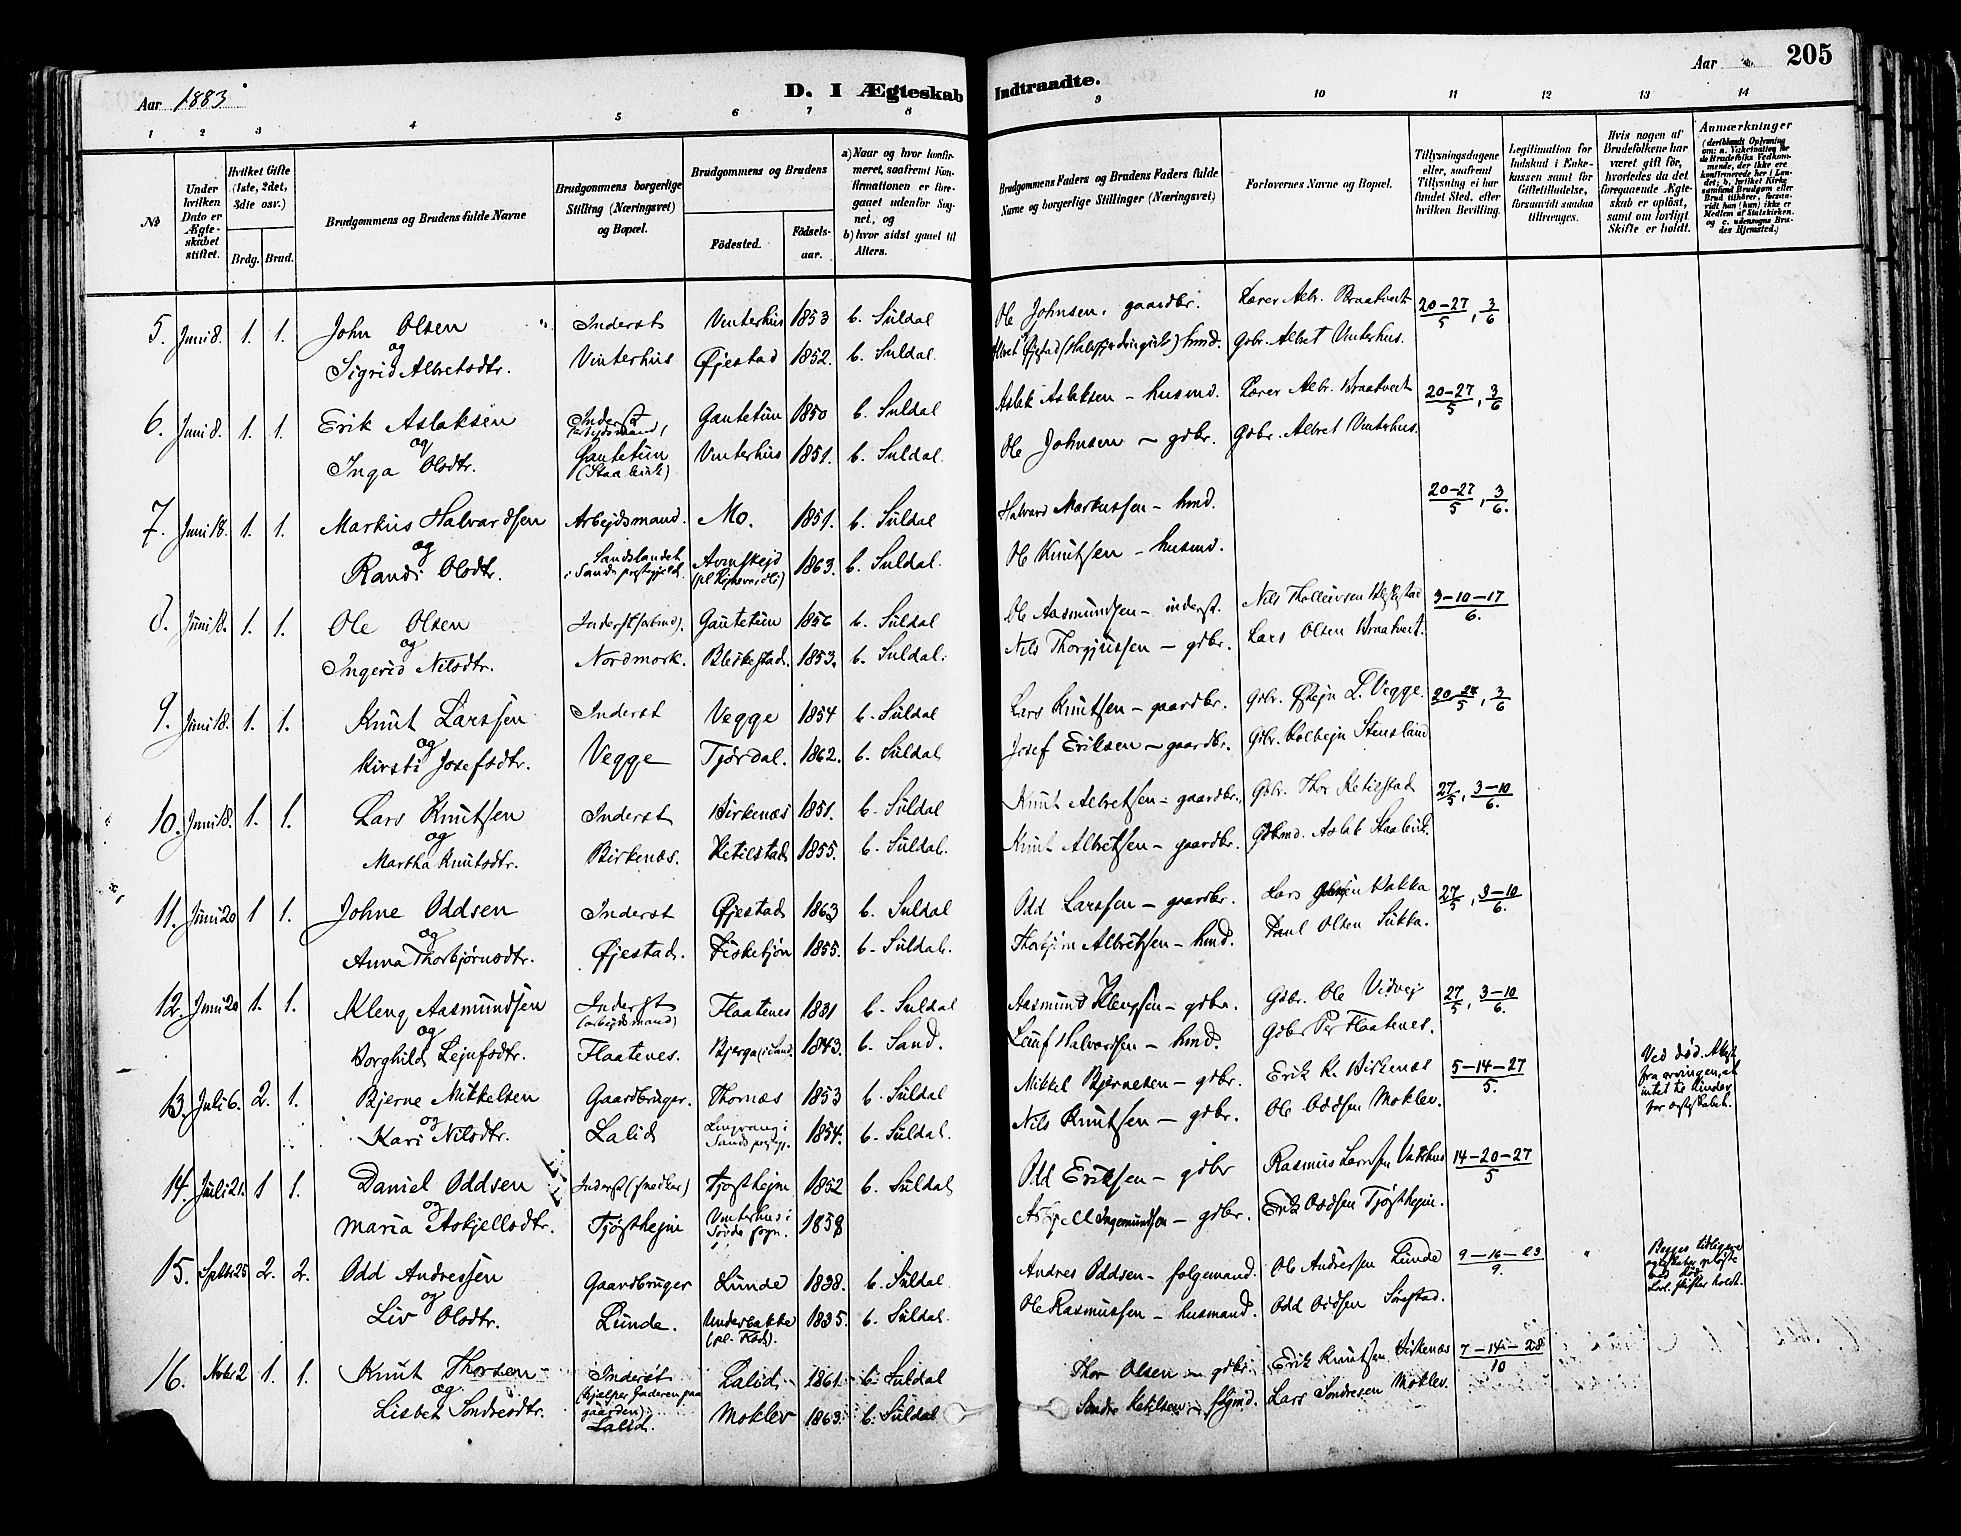 Aar 1883
D. I Ægteskab Indtraadte.
Aar 205
1 2 3 4 5 6 7 8 9 10 11 12 13 14
№
Under hvilken Dato er Ægteskabet stiftet.
Hvilket Gifte (1ste, 2det, 3die osv.)
Brdg. Brud.
Brudgommens og Brudens fulde Navne
Brudgommens borgerlige Stilling (Næringsvei) og Bopæl.
Brudgommens og Brudens
Fødested.
Fødsels-aar.
a) Naar og hvor konfirmeret, saafremt Konfirmationen er foregaaet udenfor Sognet, og
b) hvor sidst gaaet til Alters.
Brudgommens Faders og Brudens Faders fulde Navne og borgerlige Stillinger (Næringsvei)
Forlovernes Navne og Bopæl.
Tillysningsdagene eller, saafremt Tillysning ei har fundet Sted, efter hvilken Bevilling.
Legitimation for Indskud i Enkekassen samt for Giftetilladelse, forsaavidt saadan tiltrænges.
Hvis nogen af Brudefolkene har været gift før, hvorledes da det foregaaende Ægteskab er opløst, samt om lovligt Skifte er holdt.
Anmærkninger
(deriblandt Oplysning om: a. Vakcination for de Brudefolks Vedkommende, der ikke ere konfirmerede her i Landet; b. hvilket Kirkesamfund Brudgom eller Brud tilhører, forsaavidt han (hun) ikke er Medlem af Statskirken, og c. udensogns Brudes Hjemsted.)
5. Juni 8. 1. 1. John Olsen Inderst Vinterhus 1853 b. Suldal Ole Johnsen, gaardbr. Lærer Albr. Braatveit 20-27/5, 3/6
og
Sigrid Albretsdtr. Vinterhus Øjestad 1852. b. Suldal. Albret Øjestad hmd. Gbr. Albret Vinterhus.
6. Juni 8. 1. 1. Erik Aslaksen Inderst (arbejdsmand) Gautetun 1850 b. Suldal Aslak Aslaksen - husmd. Lærer Albr. Braatveit 20-27/5, 3/6
og
Inga Olsdtr. Gautetun Vinterhus 1851. b. Suldal. Ole Johnsen - gdbr. Gdbr. Albret Vinterhus.
7. Juni 18. 1. 1. Markus Halvardsen Arbejdsmand. Mo. 1851. b. Suldal Halvard Markussen - hmd. 20-27/5, 3/6.
og
Randi Olsdtr. Sandslandet i Sands prestegjeld. 1863. b. Suldal. Ole Knutsen - husmd.
8. Juni 18. 1. 1. Ole Olsen Inderst (arbmd). Gautetun 1856 b. Suldal Ole Aasmundsen - inderst. Nils Blejkestad 3-10-17/6.
og
Ingerid Nilsdtr. Nordmork. Blejkestad. 1853. b. Suldal. Nils - gdbr. Lars Olsen Braatveit.
9. Juni 18. 1. 1. Knut Larssen Inderst Vegge 1854 b. Suldal Lars Knutsen - gaardbr. Gdbr. Østejn L. Vegge. 20-27/5, 3/6
og
Kirsti Josefsdtr. Vegge Tjørdal. 1862. b. Suldal Josef Eriksen - gaardbr. Gdbr. Kolbejn Stensland
10. Juni 18. 1. 1. Lars Knutsen Inderst Birkenæs 1851. b. Suldal Knut Albretsen - gaardbr. Gdbr. Thor Ketilstad 27/5, 3-10/6.
og
Martha Knutsdtr. Birkenæs. Ketilstad 1855. b. Suldal. Knut Albretsen - gaardbr. Aslak
11. Juni 20 1 1. Johne Oddsen Inderst Øjestad 1863 b. Suldal Odd Larssen - gaardbr. Lars Bakka 27/5, 3-10/6.
og
Anna Thorbjørnsdtr. Øjestad. Fisketjøn 1855. b. Suldal. Thorbjørn Albretsen - hmd. Paul Olsen Sukka.
12. Juni 20 1. 1. Kleng Aasmundsen Inderst (arbejdsmand) Flaatenes 1831 b. Suldal Aasmund Klengsen - gdbr. Gdbr. Ole Vidvej 27/5, 3-10/6.
og
Borghild Lejufsdtr. Flaatenes. Bjerga (i Sand. 1843. b. Sand. Halvardsen - hmd. Gdbr Per Flaatenes.
13. Juli 6. 2. 1. Bjerne Mikkelsen Gaardbruger. Thornæs 1853 b. Suldal Mikkel Bjørnesen - gdbr. Erik K. Birkenæs 5-14-27/5. Ved død.
og
Kari Nilsdtr. Lalid Lingvang i Sands prstgj. 1854. b. Suldal. Nils Knutsen - gdbr. Ole Oddsen Moklev.
14. Juli 21. 1 1. Daniel Oddsen Inderst (snedker) Tjøsthejm 1852 b. Suldal Odd Eriksen - gdbr Rasmus 14-20-27/5
og
Maria Askjellsdtr. Tjøsthejm Vinterhus i sogn. 1858 Askjell Ingemundsen - gdbr. Erik Oddsen Tjøsthejm.
15. Septbr 25 2. 2. Odd Andressen Gaardbruger Lunde 1838. b. Suldal. Andres Oddsen - folgemand. Ole Andersen Lunde 9-16-23/9. " Begges tidligere ægteskaber opløste ved død. Lovl. skifter holdt.
og
Liv Olsdtr. Lunde. Underbakke 1835. b. Suldal. Ole Rasmussen - husmand. Odd Oddsen
16. Novbr 2 1. 1. Knut Thorsen Inderst (hjælper faderen paa gaarden) Lalid 1861 b. Suldal Thor Olsen - gdbr. Erik Knutsen Birkenæs 7-14-28/10
og
Lisbet Sondresdtr. Lalid. Moklev 1863. b. Suldal Sondre Ketilsen - Lars Sondresen Moklev.